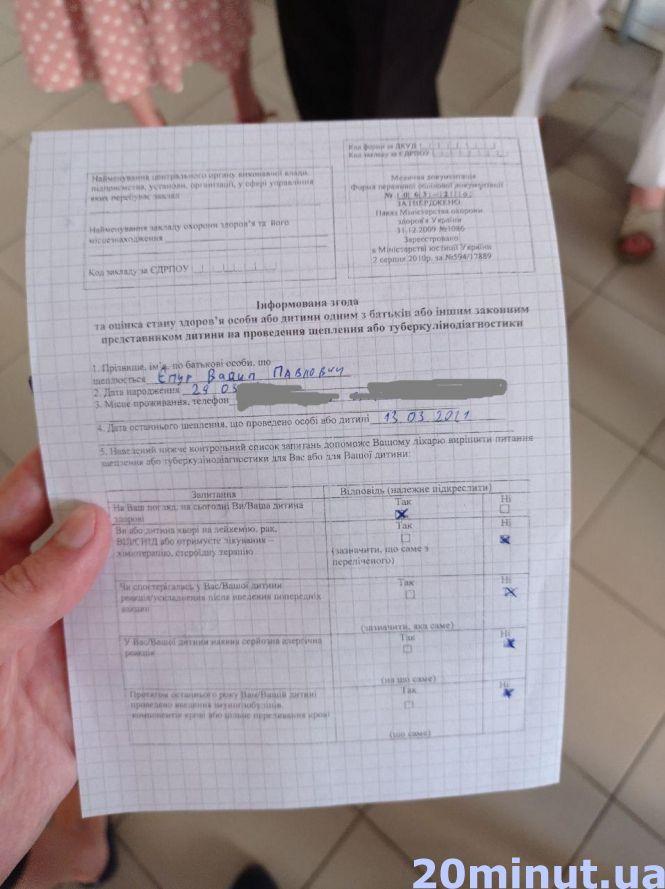 Код форми за ДКУД
Код закладу за ЄДРПОУ
Найменування центрального органу виконавчої влади,
підприємства, установи, організації, у сфері управління
яких перебуває заклад
Найменування закладу охорони здоров'я та його
місцезнаходження
Код закладу за ЄДРПОУ
Медична документація
Форма первинної облікової документації
№
ЗАТВЕРДЖЕНО
Наказ Міністерства охорони
здоров'я України
31.12.2009 №1086
Зареєстровано
в Міністерстві юстиції України
2 серпня 2010р. за №594/17889
Інформована згода
та оцінка стану здоров'я особи або дитини одним з батьків або іншим законним
представником дитини на проведення щеплення або туберкулінодіагностики
1. Прізвище, ім'я, по батькові особи, що
щеплюється Єпур Вадим Павлович
2. Дата народження 29 03
3. Місце проживання, телефон
4. Дата останнього щеплення, що проведено особі або дитині 13.03.2021
5. Наведений нижче контрольний список запитань допоможе Вашому лікарю вирішити питання
щеплення або туберкулінодіагностики для Вас або для Вашої дитини:
Запитання Відповідь (належне підкреслити)
На Ваш погляд, на сьогодні Ви/Ваша дитина
здорові
Так Ні
Ви або дитина хворі на лейкемію, рак,
ВІЛ/СНІД або отримуєте лікування –
хіміотерапію, стероїдну терапію
Так Ні
(зазначити, що саме з
переліченого)
Чи спостерігались у Вас/Вашої дитини
реакція/ускладнення після введення попередніх
вакцин
Так Ні
(зазначити, яка саме)
У Вас/Вашої дитини наявна серйозна алергічна
реакція
Так Ні
(на що саме)
Протягом останнього року Вам/Вашій дитині
проведено введення імуноглобулінів,
компонентів крові або цільне переливання крові
Так Ні
(що саме)
20minut.ua